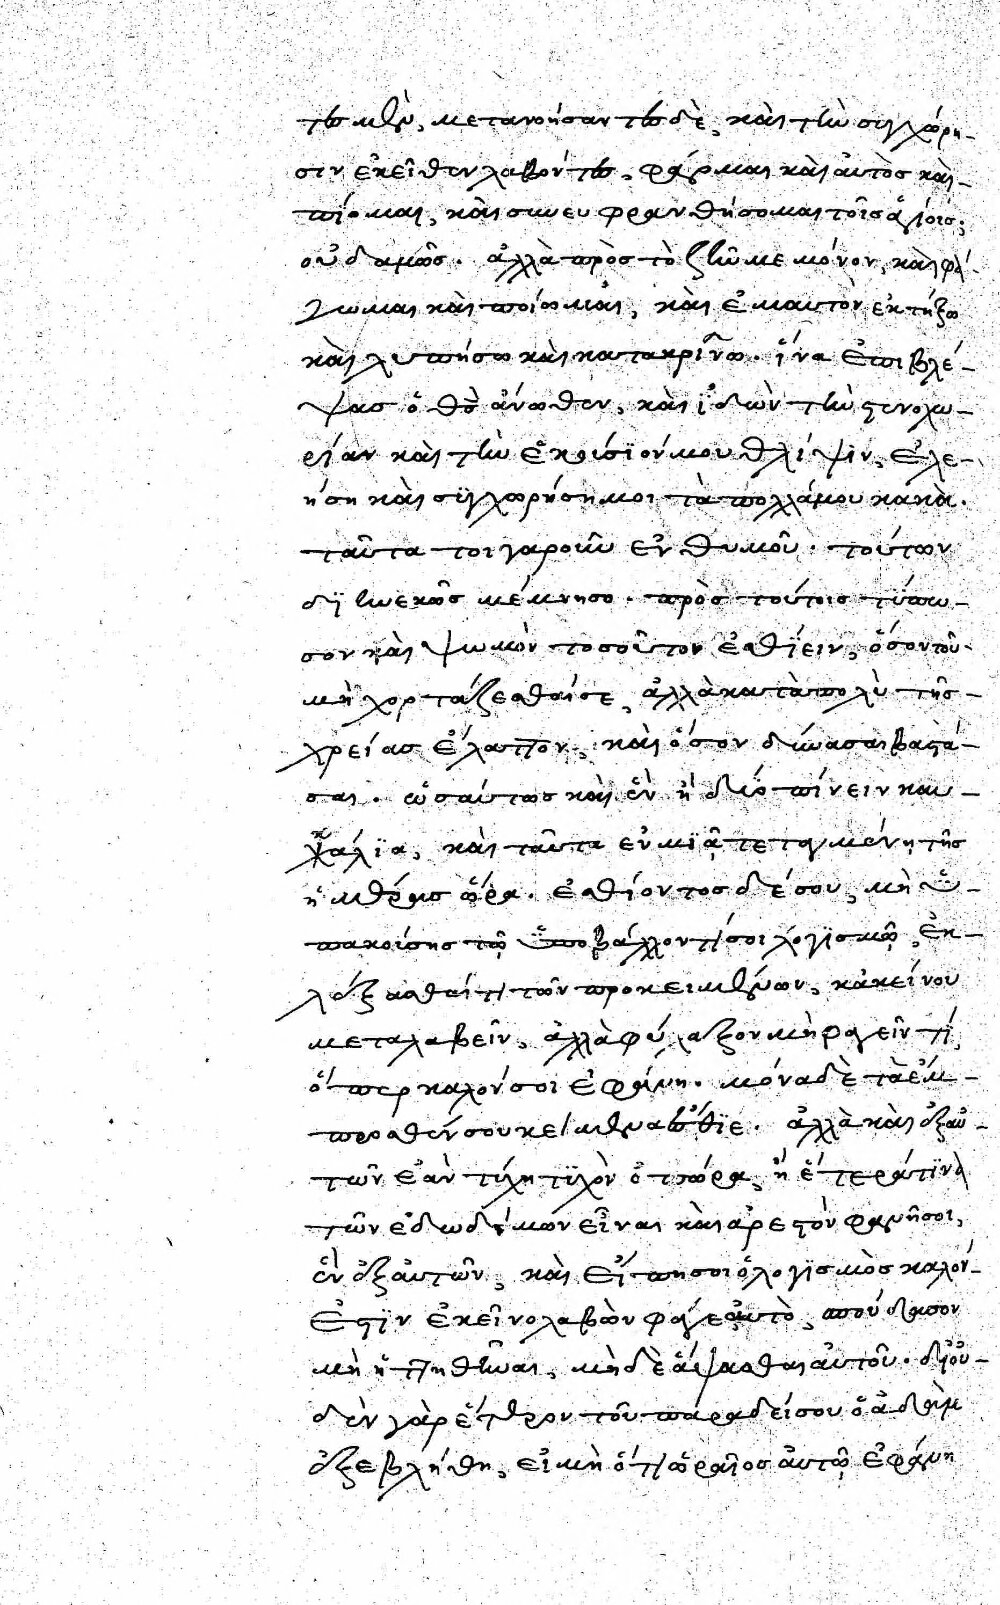 τος μὲν, μετανοήσαντος δὲ, καὶ τὴν συγχώρη-
σιν ἐκεῖθεν λαβόντος, φάγομαι καὶ αὐτὸς καὶ
πίομαι, καὶ συνευφρανθήσομαι τοῖς ἁγίοις;
οὐδαμῶς. ἀλλὰ πρὸς τὸ ζῆν με μόνον, καὶ φά-
γωμαι καὶ ποίωμαι, καὶ ἐμαυτὸν ἐκτήξω
καὶ λυπήσω καὶ κατακρινῶ. ἵνα ἐπιβλέ-
ψας ὁ θεὸς ἄνωθεν, καὶ ἰδὼν τὴν στενοχω-
ρίαν καὶ τὴν ἑκούσιόν μου θλίψιν, ἐλε-
ήση καὶ συγχωρήση μοι τὰ πολλά μου κακά.
ταῦτα τοιγαροῦν ἐνθυμοῦ. τούτων
διηνεκῶς μέμνησο. πρὸς τούτοις τύπω-
σον καὶ ψωμὸν τοσοῦτον ἐσθίειν, ὅσον τοῦ
μὴ χορτάζεσθαί σε, ἀλλὰ κατὰ πολὺ τῆς
χρείας ἔλαττον, καὶ ὅσον δύνασαι βαστά-
σαι. ὡσαύτως καὶ ἓν ἢ δύο πίνειν καυ-
κάλια, καὶ ταῦτα ἐν μιᾷ τεταγμένη τῆς
ἡμέρας ὥρα. ἐσθίοντος δέ σου, μὴ ὑ-
πακούσης τῷ ὑποβάλλοντί σοι λογισμῷ, ἐκ-
λέξασθαί τι τῶν προκειμένων, κἀκείνου
μεταλαβεῖν, ἀλλὰ φύλαξον μὴ φαγεῖν τί,
ὅπερ καλόν σοι ἐφάνη. μόνα δὲ τὰ ἔμ-
προσθέν σου κείμενα ἔσθιε. ἀλλὰ καὶ ἐξ αὐ-
τῶν ἐὰν τύχη τυχὸν ὀπώρα, ἢ ἕτερά τινα
τῶν ἐδωδίμων εἶναι καὶ ἀρεστὸν φανῆ σοι,
ἓν ἐξ αὐτῶν, καὶ εἴπη σοι ὁ λογισμὸς καλόν
ἐστιν ἐκεῖνο λαβὼν φάγε αὐτὸ, σπούδασον
μὴ ἡττηθῆναι, μηδὲ ἅψασθαι αὐτοῦ. δι' οὐ-
δὲν γὰρ ἕτερον τοῦ παραδείσου ὁ ἀδὰμ
ἐξεβλήθη, εἰ μὴ ὅτι ὡραῖος αὐτῷ ἐφάνη